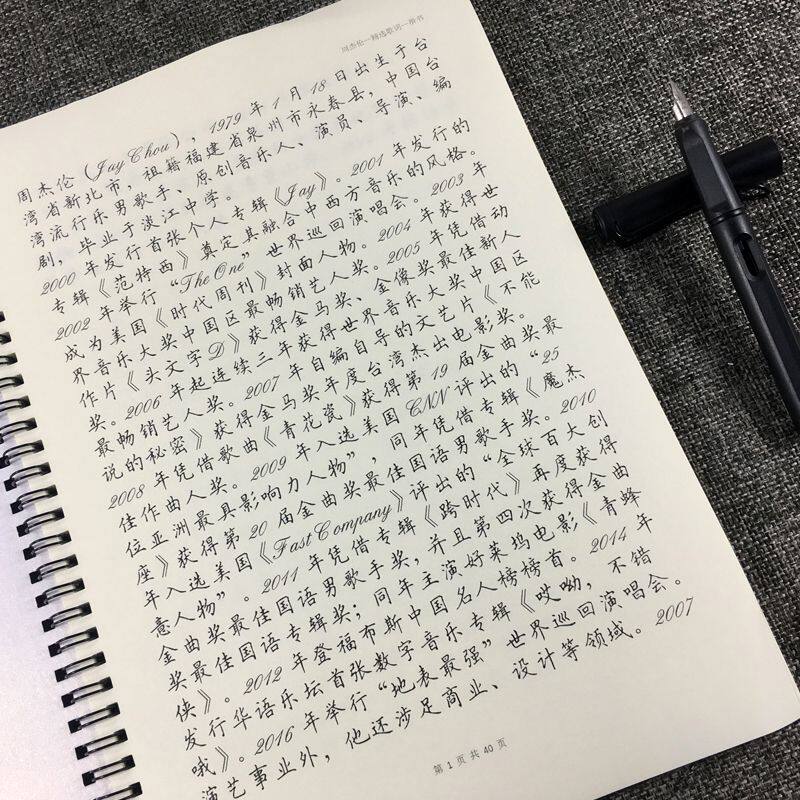 周杰伦—精选歌词—楷书
周杰伦（Jay Chou），1979 年 1 月 18 日出生于台
湾省新北市，祖籍福建省泉州市永春县，中国台
湾流行乐男歌手、原创音乐人、演员、导演、编
剧，毕业于淡江中学。
2000 年发行首张个人专辑《Jay》。2001 年发行的
专辑《范特西》奠定其融合中西方音乐的风格。
2002 年举行“The One”世界巡回演唱会。2003 年
成为美国《时代周刊》封面人物。2004 年获得世
界音乐大奖中国区最畅销艺人奖。2005 年凭借动
作片《头文字D》获得金马奖、金像奖最佳新人
奖。2006 年起连续三年获得世界音乐大奖中国区
最畅销艺人奖。2007 年自编自导的文艺片《不能
说的秘密》获得金马奖年度台湾杰出电影奖。
2008 年凭借歌曲《青花瓷》获得第 19 届金曲奖最
佳作曲人奖。2009 年入选美国CNN 评出的“25
位亚洲最具影响力人物”，同年凭借专辑《魔杰
座》获得第 20 届金曲奖最佳国语男歌手奖。2010
年入选美国《Fast Company》评出的“全球百大创
意人物”。2011 年凭借专辑《跨时代》再度获得
金曲奖最佳国语男歌手奖，并且第四次获得金曲
奖最佳国语专辑奖；同年主演好莱坞电影《青蜂
侠》。2012 年登福布斯中国名人榜榜首。2014 年
发行华语乐坛首张数字音乐专辑《哎呦，不错
哦》。2016 年举行“地表最强”世界巡回演唱会。
演艺事业外，他还涉足商业、设计等领域。2007
第 1 页 共 40 页